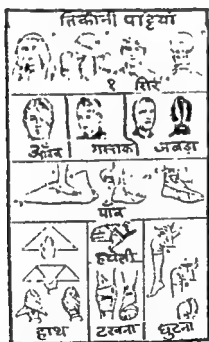 तिकोनी पट्टियां
१ सिर
आँख मस्तक जबड़ा
पाँव
हथेली
हाथ टखना घुटना